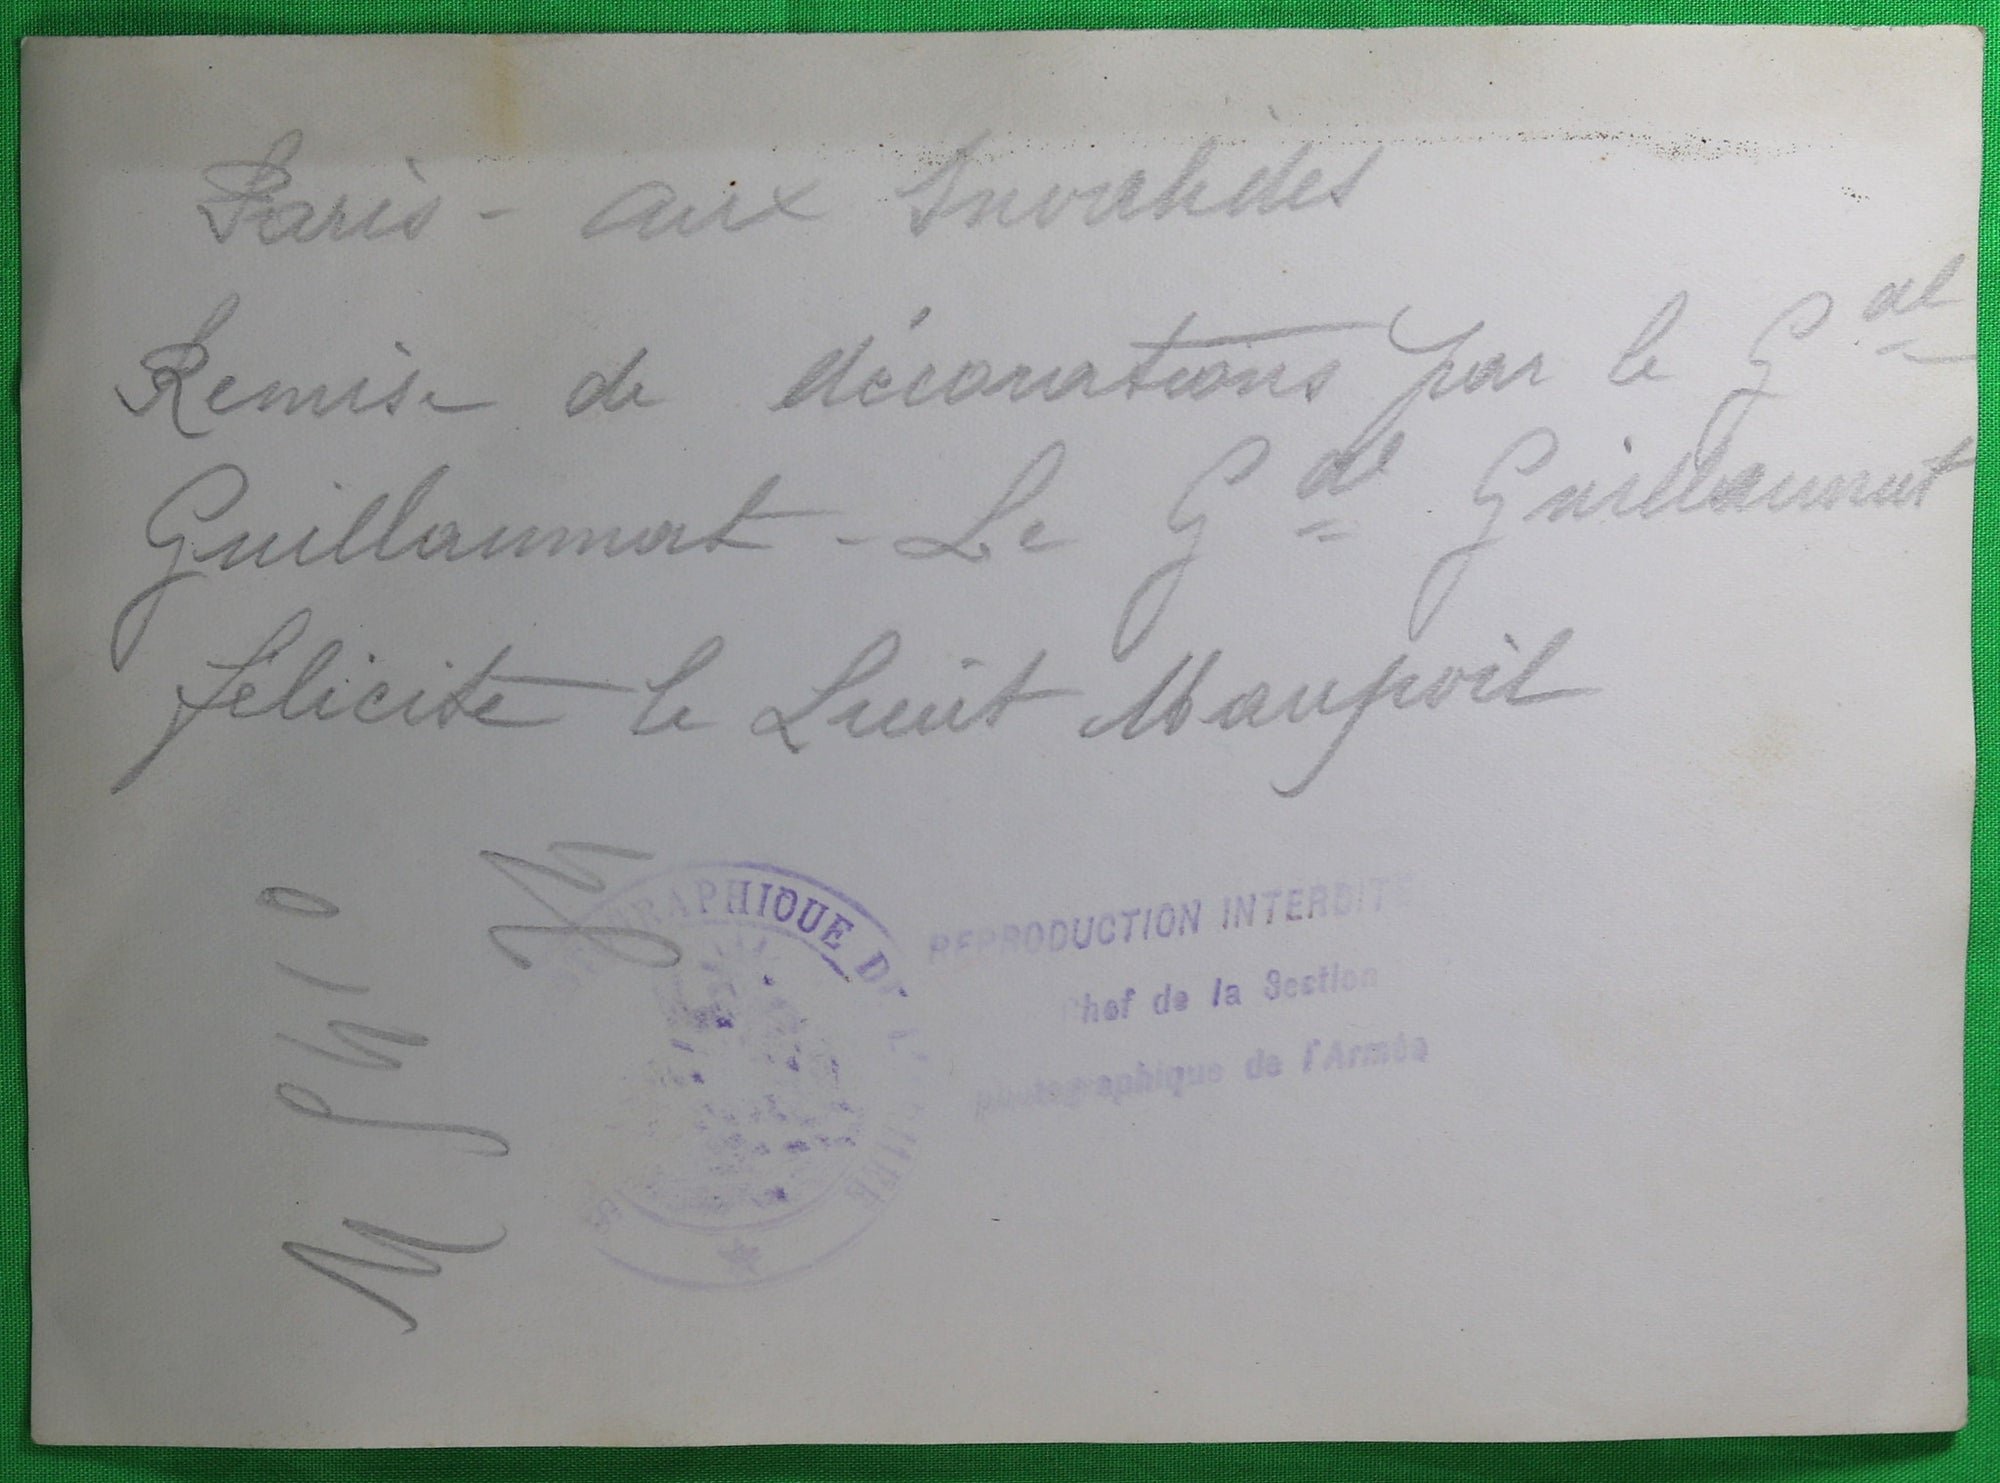 Paris - aux Invalides
Remise de décorations par le Gal
Guillaumat - Le Gal Guillaumat
félicite le Lieut Maupoil
PHIQUE DE
REPRODUCTION INTERDITE
Chef de la Section
photographique de l'Armée